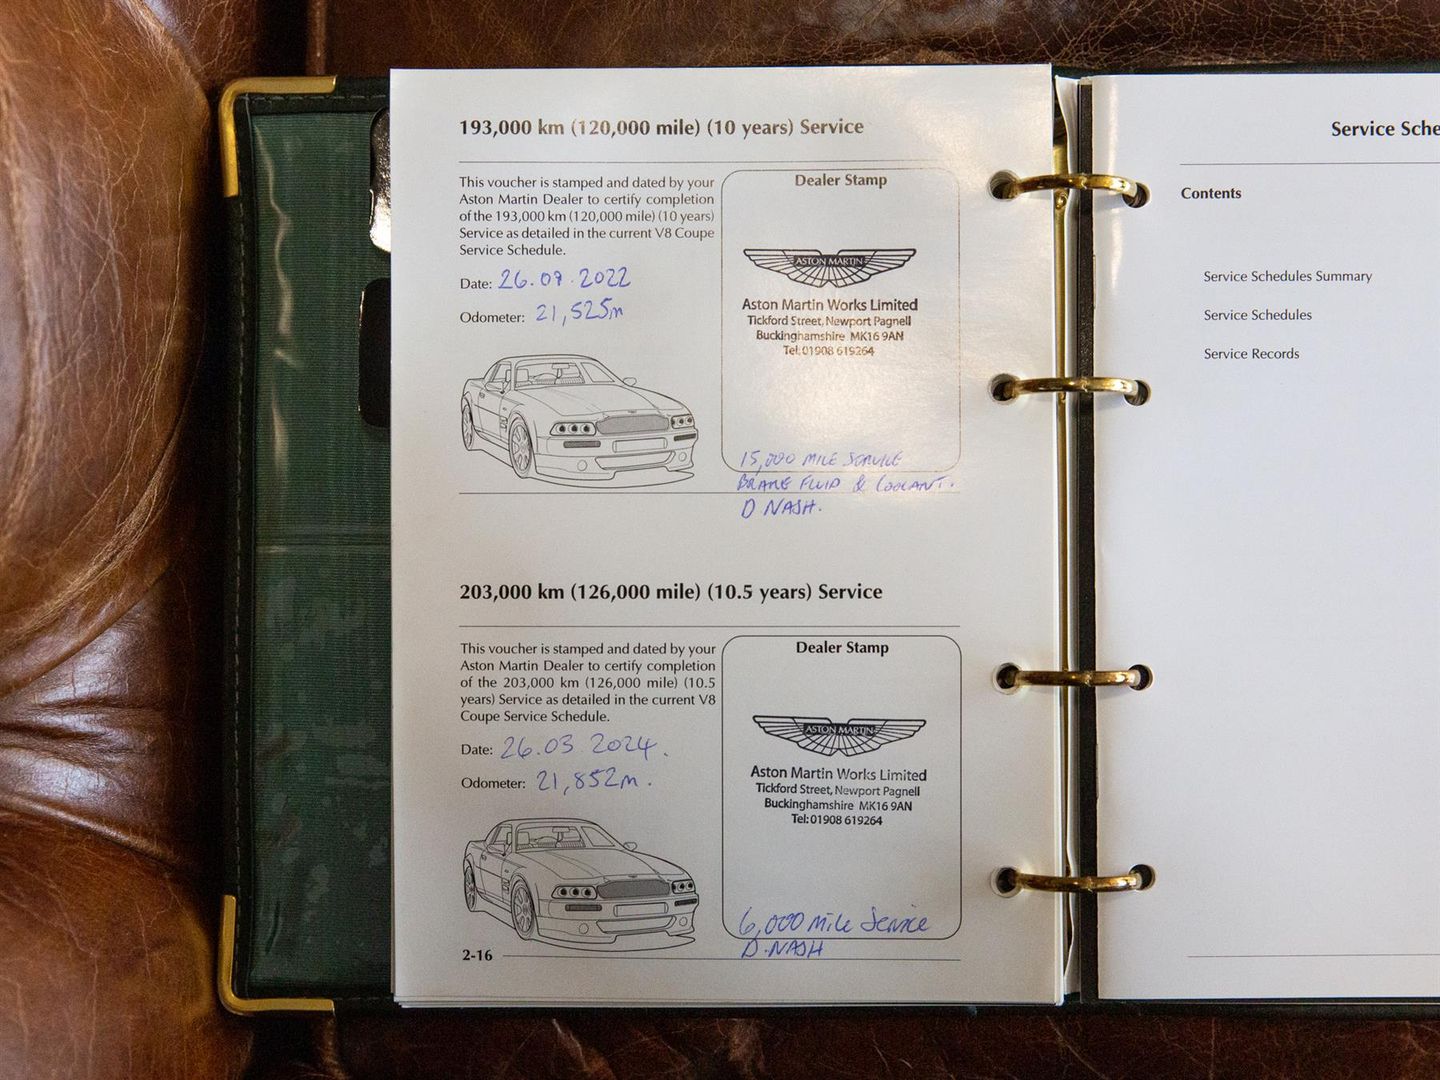 193,000 km (120,000 mile) (10 years) Service
This voucher is stamped and dated by your
Aston Martin Dealer to certify completion
of the 193,000 km (120,000 mile) (10 years)
Service as detailed in the current V8 Coupe
Service Schedule.
Date: 26.07.2022
Odometer: 21,525m
Dealer Stamp
ASTON MARTIN
Aston Martin Works Limited
Tickford Street, Newport Pagnell
Buckinghamshire MK16 9AN
Tel: 01908 619264
15,000 MILE SERVICE
BRAKE FLUID & COOLANT.
D NASH.
203,000 km (126,000 mile) (10.5 years) Service
This voucher is stamped and dated by your
Aston Martin Dealer to certify completion
of the 203,000 km (126,000 mile) (10.5
years) Service as detailed in the current V8
Coupe Service Schedule.
Date: 26.03 2024.
Odometer: 21,852m.
Dealer Stamp
ASTON MARTIN
Aston Martin Works Limited
Tickford Street, Newport Pagnell
Buckinghamshire MK16 9AN
Tel: 01908 619264
6,000 Mile Service
D. NASH
2-16
Service Sche
Contents
Service Schedules Summary
Service Schedules
Service Records